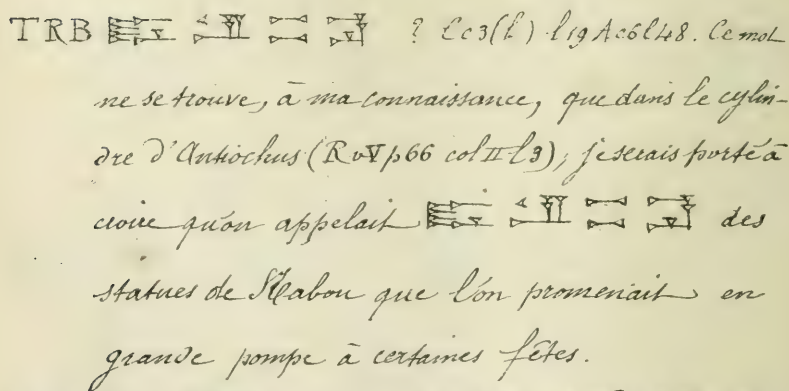 TRB ? Cc3(l) l19 Ac6l48. Ce mot
ne se trouve, à ma connaissance, que dans le cylin-
dre d'Antiochus (RvV p66 col II l3); je serais porté à
croire qu'on appelait des
statues de Nabou que l'on promenait en
grande pompe à certaines fêtes.